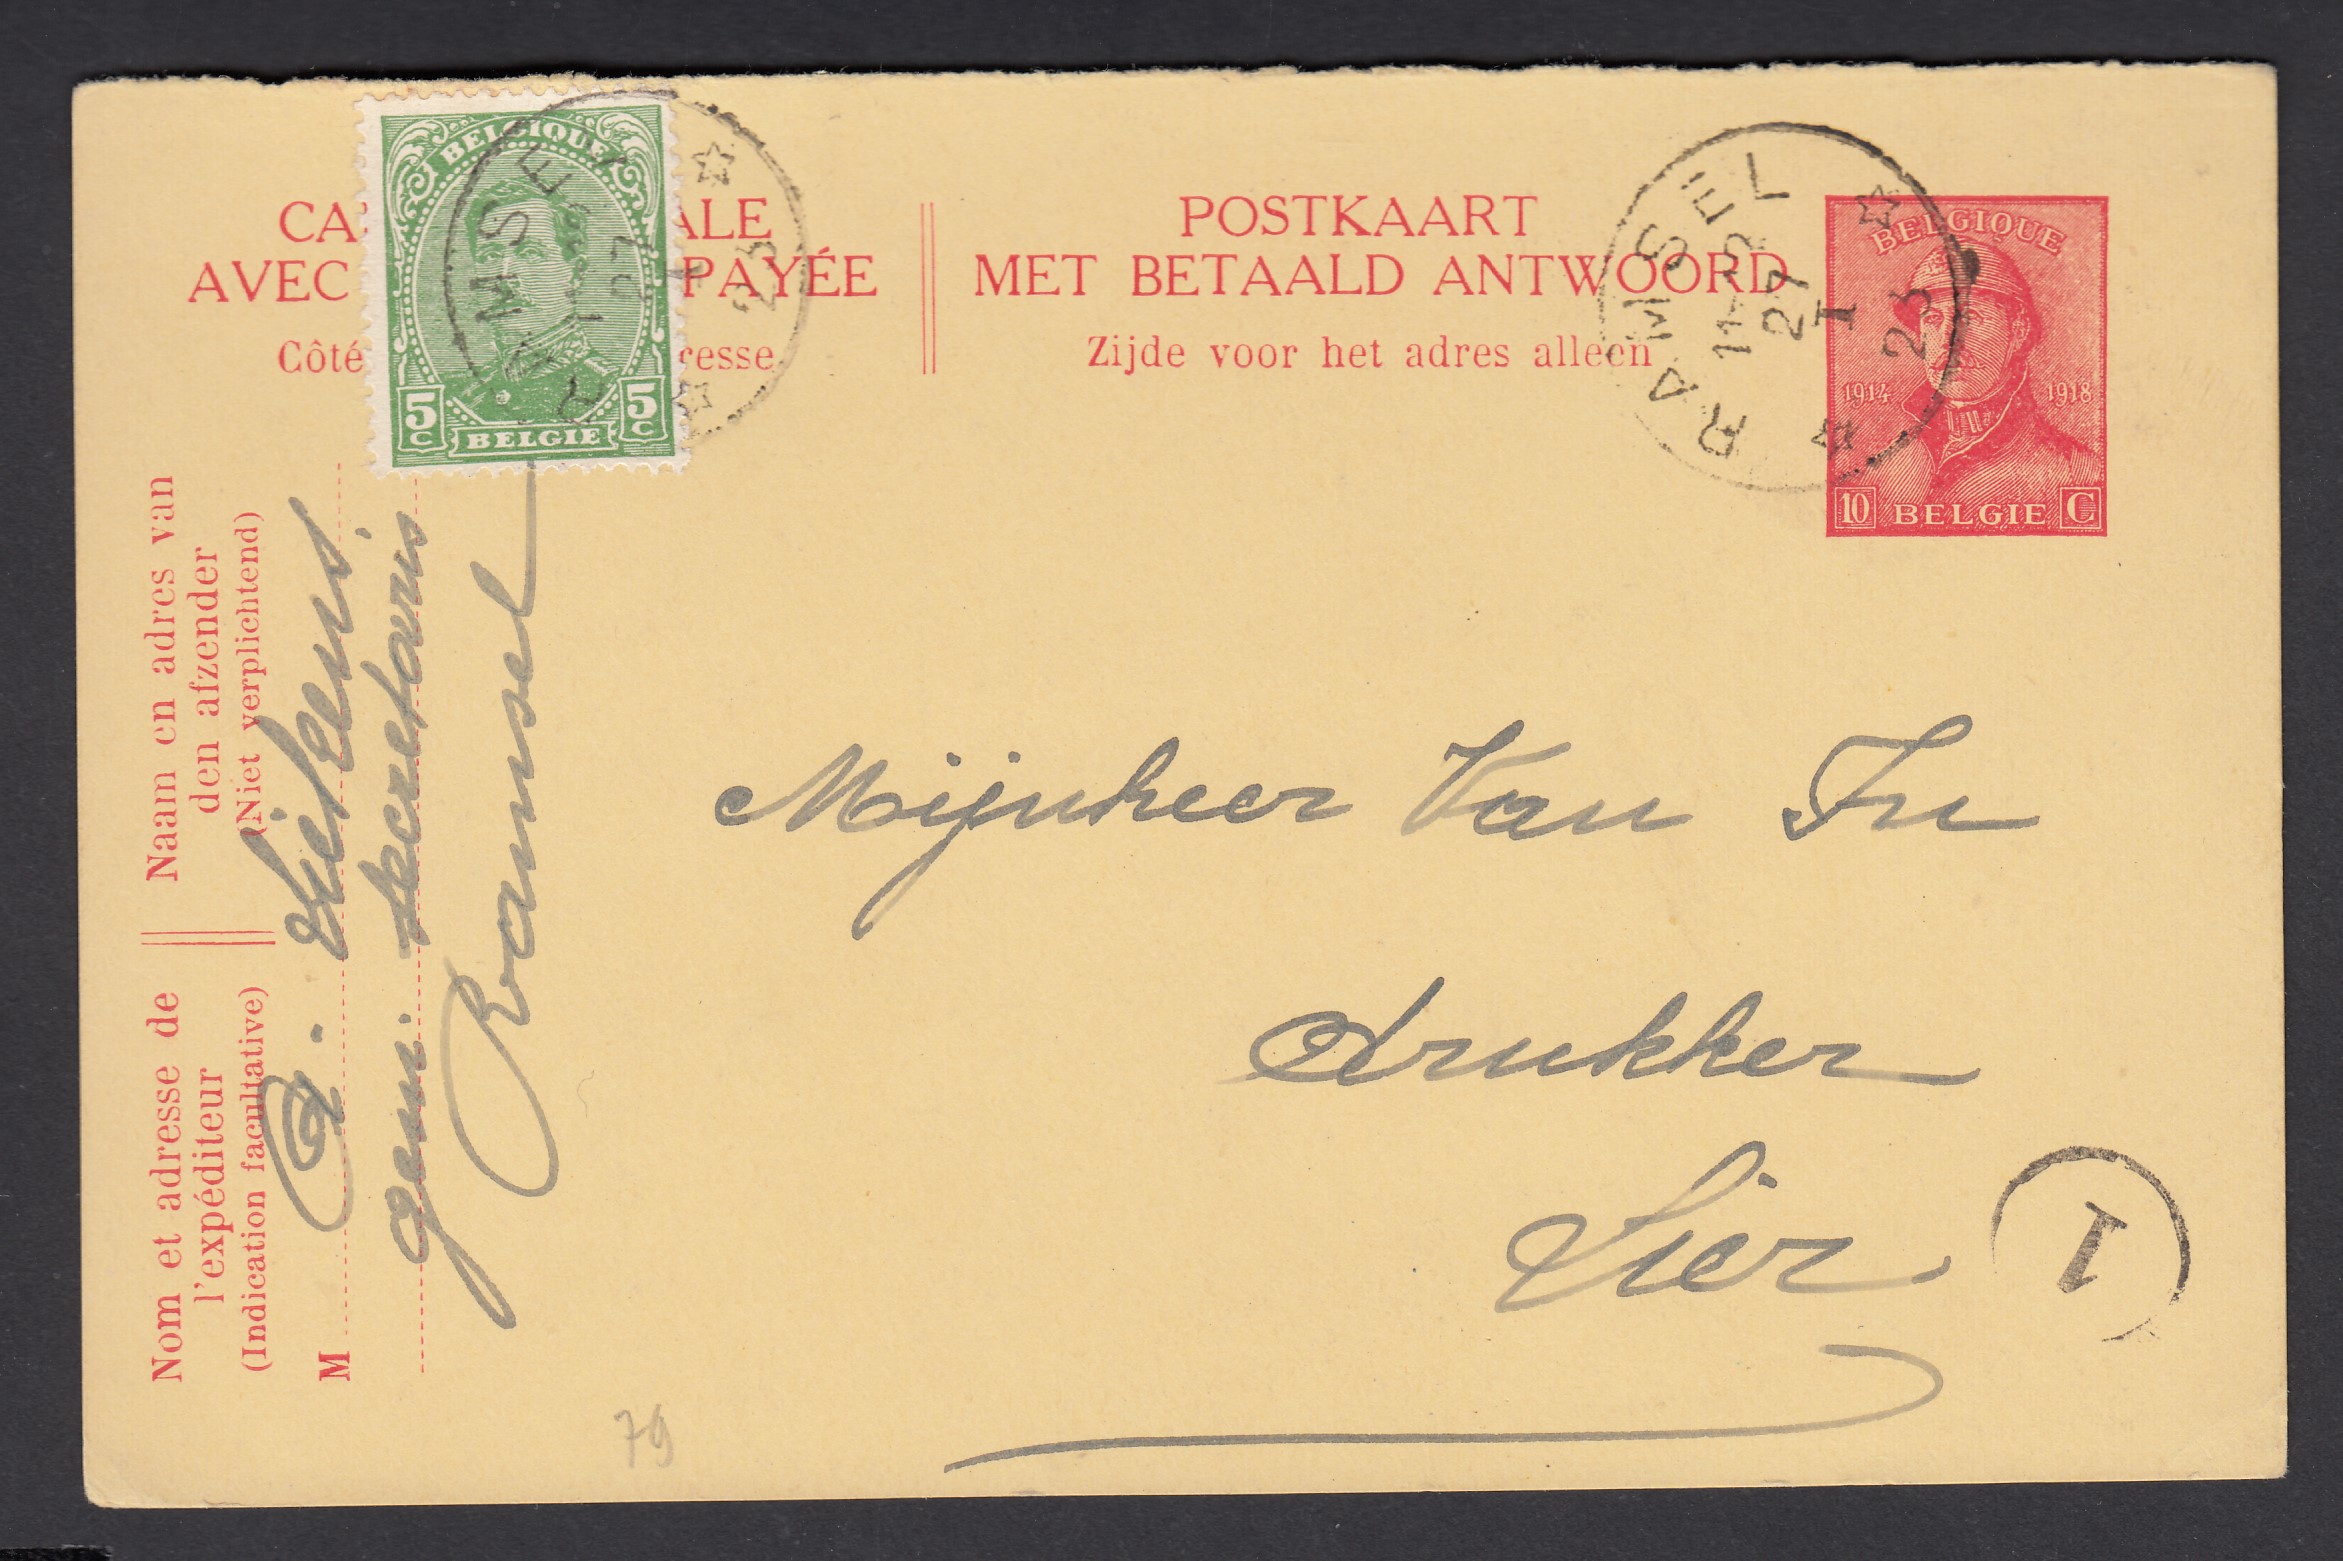 CA ALE
AVEC PAYÉE
Côté resse
POSTKAART
MET BETAALD ANTWOORD
Zijde voor het adres alleen
BELGIQUE
5 C BELGIE 5 C
RAMSEL
27
23
RAMSEL
11-12
27
I
23
BELGIQUE
1914 1918
10 BELGIE C
Naam en adres van
den afzender
(Niet verplichtend)
Nom et adresse de
l'expéditeur
(Indication facultative)
M
gem. secretaris
Ramsel
Mijnheer Van In
drukker
Lier
1
79